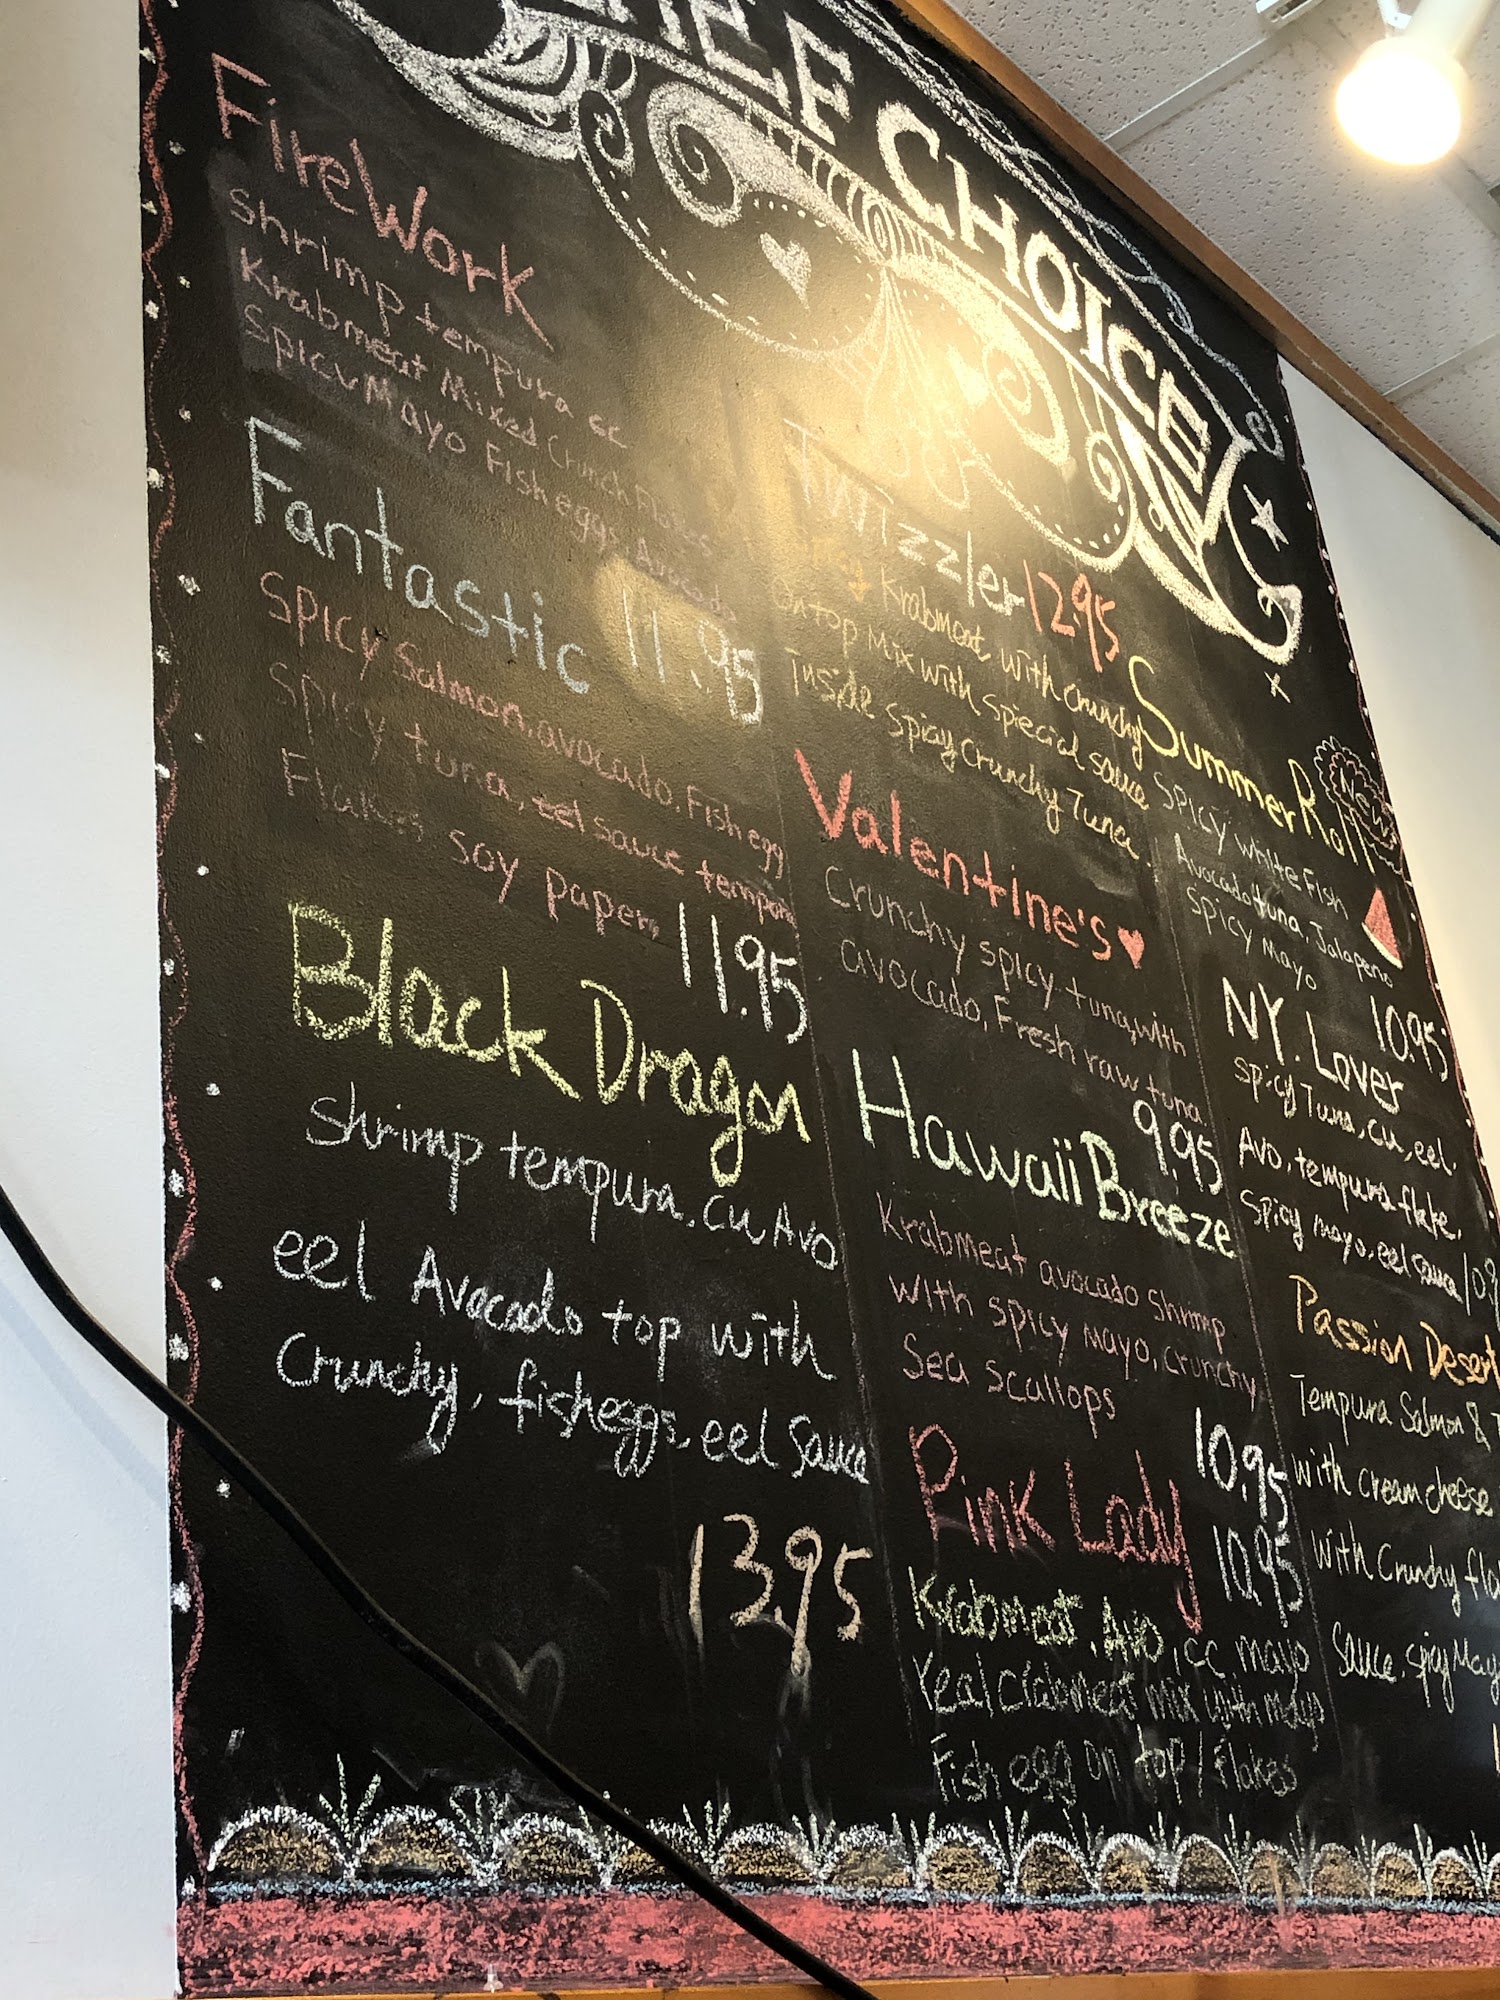 CHEF CHOICE
FireWork
Shrimp tempura cc
Krabmeat Mixed Crunch Flakes
Spicy Mayo Fish eggs Avocado
11.95
Fantastic
Spicy Salmon, avocado, Fish egg
Spicy tuna, eel sauce tempura
Flakes, soy paper,
11.95
Black Dragon
Shrimp tempura, cu, Avo
eel Avocado top with
Crunchy, fisheggs, eel Sauce
13.95
Twizzler 12.95
Krabmeat with crunchy
on top Mix with Spiecial sauce
Inside Spicy Crunchy Tuna.
Valentine's
Crunchy spicy tuna, with
avocado, Fresh raw tuna
9.95
Hawaii Breeze
Krabmeat avocado shrimp
with spicy mayo, crunchy
Sea scallops
10.95
Pink Lady 10.95
Krabmeat, Avo, cc mayo
mix with mayo
Fish egg on top / flakes
Summer Roll
New
Spicy white Fish
Avocado tuna, Jalapeno
Spicy Mayo
10.95
NY. Lover
Spicy Tuna, cu, eel.
Avo, tempura flake,
Spicy mayo, eel sauce
Passion Desert
Tempura Salmon &
with cream cheese
with Crunchy
Sauce, spicy Mayo